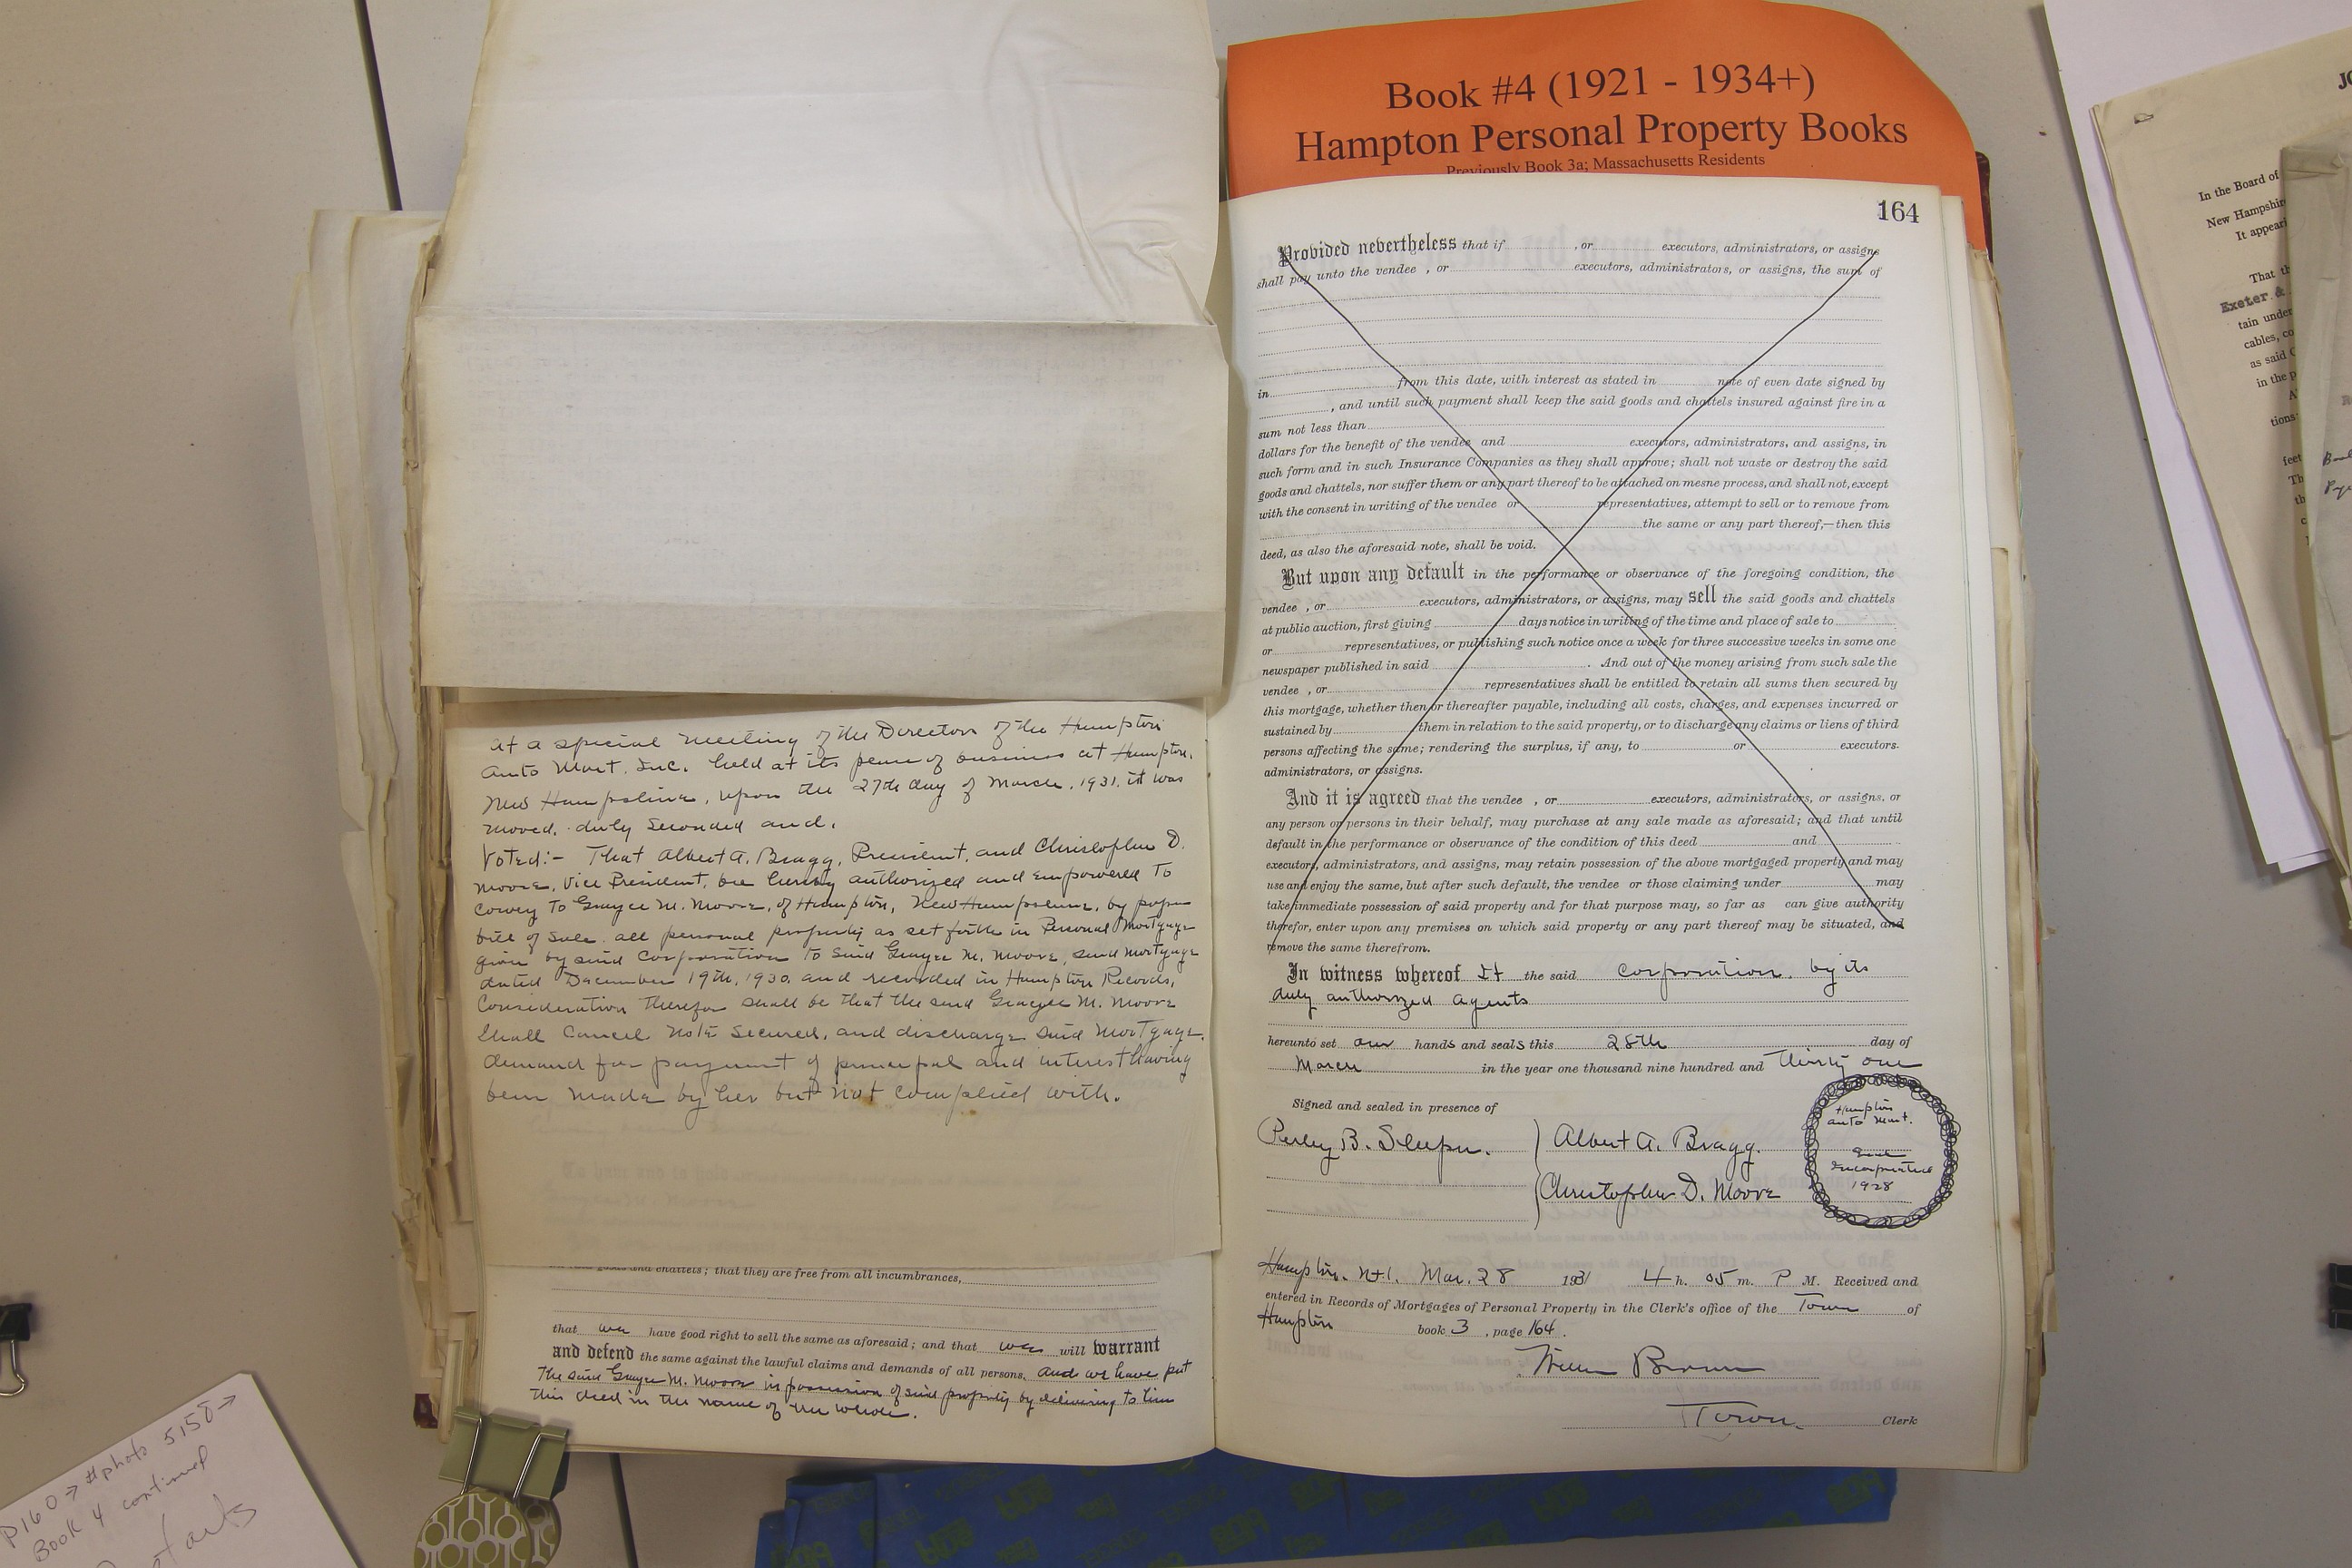 Book #4 (1921 - 1934+)
Hampton Personal Property Books
Previously Book 3a; Massachusetts Residents
At a special meeting of the Directors of the Hampton
Auto Mart, Inc. held at its place of business at Hampton,
New Hampshire, upon the 27th day of March, 1931, it was
moved, duly seconded and,
Voted:- That Albert A. Bragg, President, and Christopher D.
Moore, Vice President, be hereby authorized and empowered to
convey to Graycee M. Moore, of Hampton, New Hampshire, by proper
bill of sale all personal property as set forth in Personal Mortgage
given by said Corporation to said Graycee M. Moore, said mortgage
dated December 19th, 1930, and recorded in Hampton Records,
Consideration therefor shall be that the said Graycee M. Moore
shall cancel note secured, and discharge said Mortgage,
demand for payment of principal and interest having
been made by her but not complied with.
goods and chattels; that they are free from all incumbrances,
that we have good right to sell the same as aforesaid; and that we will warrant
and defend the same against the lawful claims and demands of all persons, and we have put
the said Graycee M. Moore in possession of said property by delivering to him
this deed in the name of the whole.
164
Provided nevertheless that if , or executors, administrators, or assigns
shall pay unto the vendee , or executors, administrators, or assigns, the sum of
in from this date, with interest as stated in note of even date signed by
, and until such payment shall keep the said goods and chattels insured against fire in a
sum not less than
dollars for the benefit of the vendee and executors, administrators, and assigns, in
such form and in such Insurance Companies as they shall approve; shall not waste or destroy the said
goods and chattels, nor suffer them or any part thereof to be attached on mesne process, and shall not, except
with the consent in writing of the vendee or representatives, attempt to sell or to remove from
the same or any part thereof,—then this
deed, as also the aforesaid note, shall be void.
But upon any default in the performance or observance of the foregoing condition, the
vendee , or executors, administrators, or assigns, may sell the said goods and chattels
at public auction, first giving days notice in writing of the time and place of sale to
or representatives, or publishing such notice once a week for three successive weeks in some one
newspaper published in said . And out of the money arising from such sale the
vendee , or representatives shall be entitled to retain all sums then secured by
this mortgage, whether then or thereafter payable, including all costs, charges, and expenses incurred or
sustained by them in relation to the said property, or to discharge any claims or liens of third
persons affecting the same; rendering the surplus, if any, to or executors.
administrators, or assigns.
And it is agreed that the vendee , or executors, administrators, or assigns, or
any person or persons in their behalf, may purchase at any sale made as aforesaid; and that until
default in the performance or observance of the condition of this deed and
executors, administrators, and assigns, may retain possession of the above mortgaged property and may
use and enjoy the same, but after such default, the vendee or those claiming under may
take immediate possession of said property and for that purpose may, so far as can give authority
therefor, enter upon any premises on which said property or any part thereof may be situated, and
remove the same therefrom.
In witness whereof It the said Corporation by its
duly authorized agents
hereunto set our hands and seals this 28th day of
March in the year one thousand nine hundred and thirty one
Signed and sealed in presence of
Perley B. Sleeper. Albert A. Bragg.
Christopher D. Moore
Hampton
Auto Mart.
Seal
Incorporated
1928
Hampton, N.H. Mar. 28 1931 4 h. 05 m. P M. Received and
entered in Records of Mortgages of Personal Property in the Clerk's office of the Town of
Hampton book 3 , page 164.
Brown
Town Clerk
In the Board of
New Hampshire
It appear
That th
Exeter &
tain under
cables, co
as said C
in the p
tions
feet
P160 → #photo 5158 →
Book 4 continued